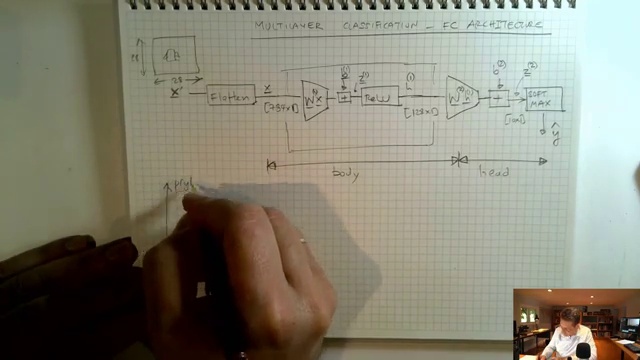 MULTILAYER CLASSIFICATION - FC ARCHITECTURE
28
28
x'
Flatten
x
[784x1]
W(1)x
b(1)
+
z(1)
ReLU
h(1)
[128x1]
W(2)h(1)
b(2)
+
z(2)
[10x1]
SOFT
MAX
ŷ
body
head